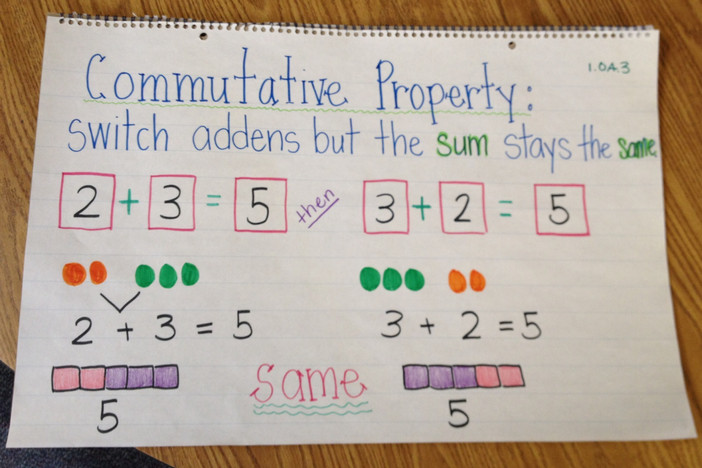 1.OA.3
Commutative Property:
switch addens but the sum stays the same
2 + 3 = 5 then 3 + 2 = 5
2 + 3 = 5 3 + 2 = 5
same
5 5